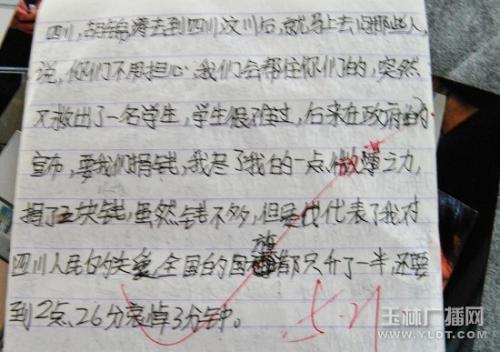 四川，胡锦涛去到四川汶川后，就马上去问那些人，
说，你们不用担心，我们会帮住你们的，突然
又救出了一名学生，学生很难过，后来在政府的
宣布，要我们捐钱，我尽了我的一点微薄之力，
捐了五块钱，虽然钱不多，但是也代表了我对
四川人民的关爱，全国的国旗都只升了一半，还要
到2点、26分哀悼3分钟。
玉林广播网
WWW.YLGT.COM